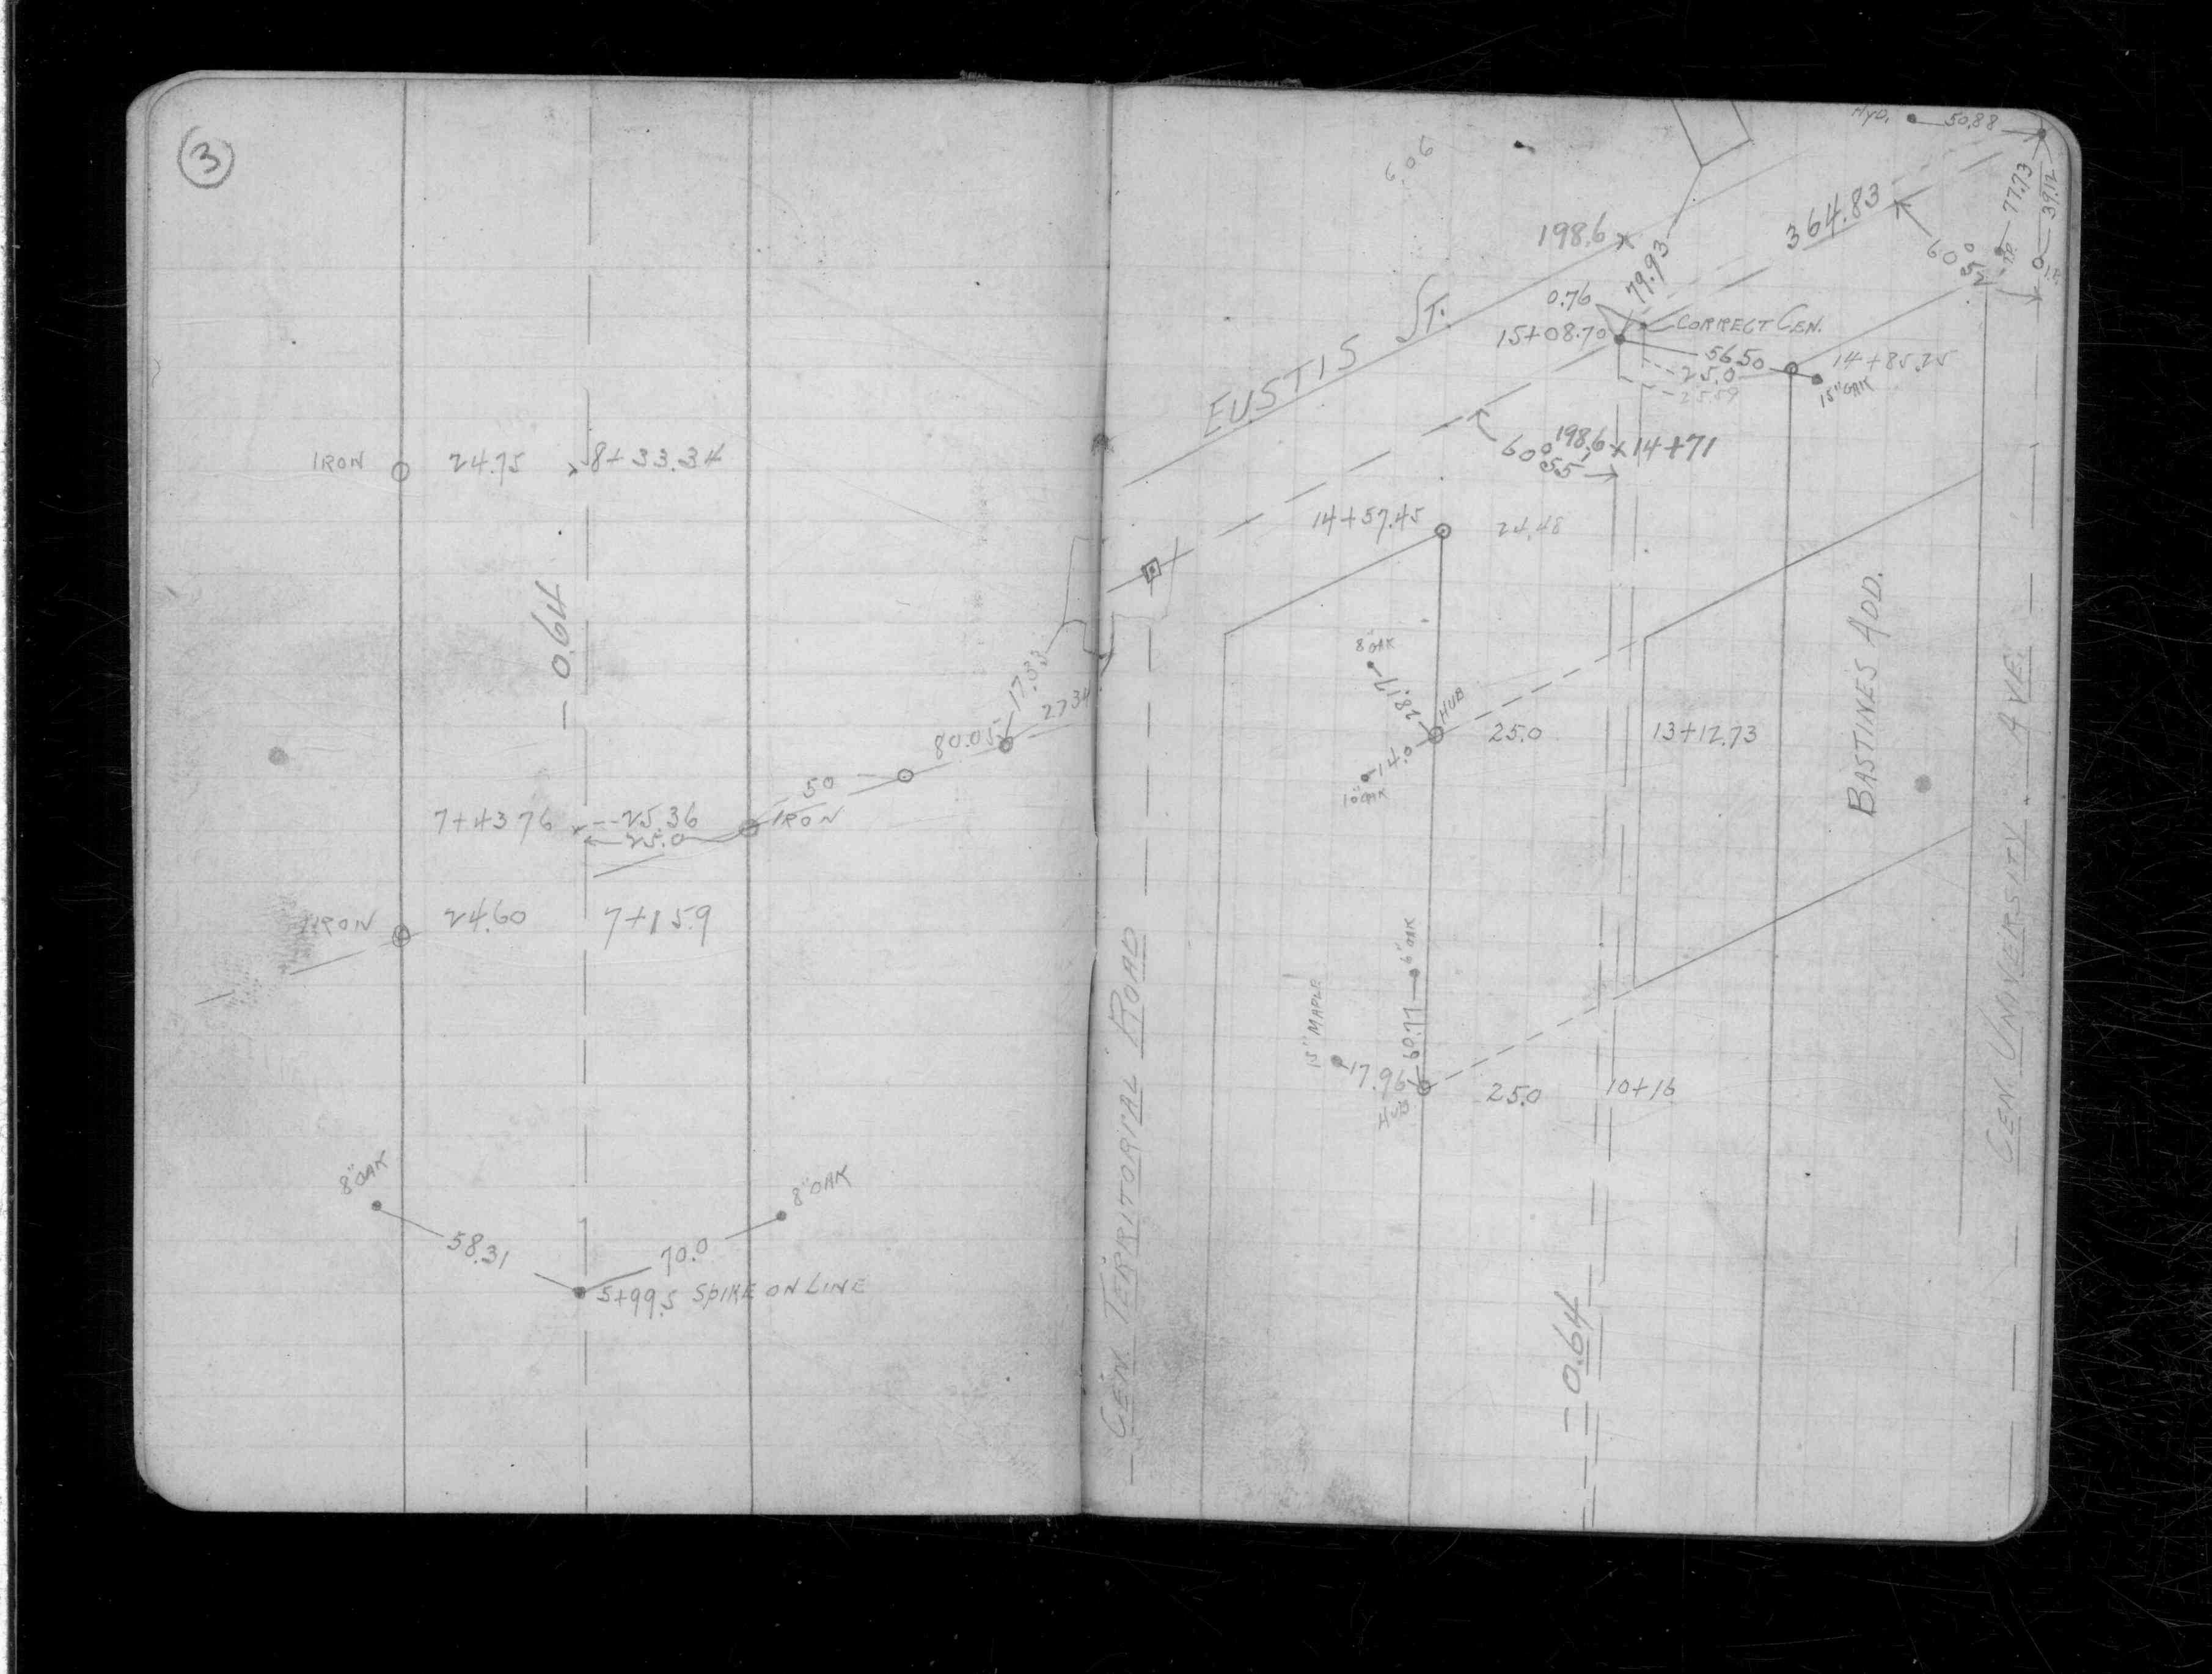 3
IRON 24.75 8+33.34
0.64
17.33
27.34
80.05
50
7+43.76 25.36 IRON
25.0
IRON 24.60 7+15.9
8" OAK
8" OAK
58.31
70.0
5+99.5 SPIKE ON LINE
HYD. 50.88
606
77.73
39.12
198.6
364.83
79.93
60° 52'
I.P.
0.76
CORRECT CEN.
15+08.70
EUSTIS ST.
56.50
14+85.25
25.0
15" OAK
25.59
198.6 14+71
60° 55'
14+57.45 24.48
8" OAK
28.17
HUB
25.0 13+12.73
14.0
10" OAK
BASTINES ADD.
6" OAK
15" MAPLE
60.77
17.96
HUB
25.0 10+16
CEN. TERRITORIAL ROAD
CEN. UNIVERSITY AVE.
0.64